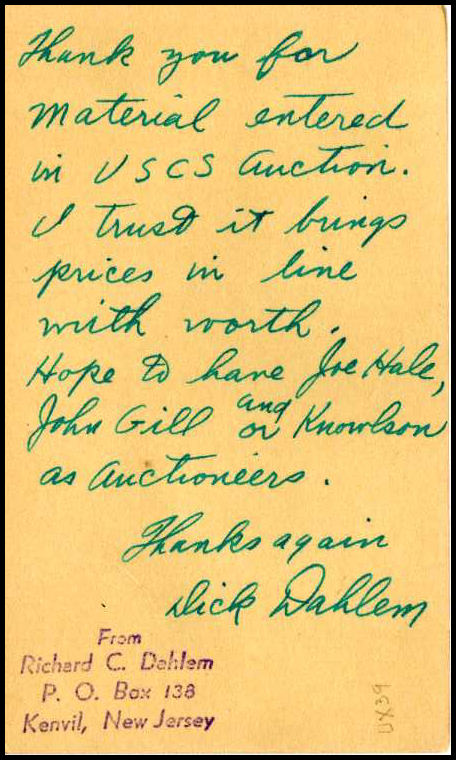 Thank you for
material entered
in USCS Auction.
I trust it brings
prices in line
with worth.
Hope to have Joe Hale,
John Gill and or Knowlson
as Auctioneers.
Thanks again
Dick Dahlem
From
Richard C. Dahlem
P. O. Box 138
Kenvil, New Jersey
UX39